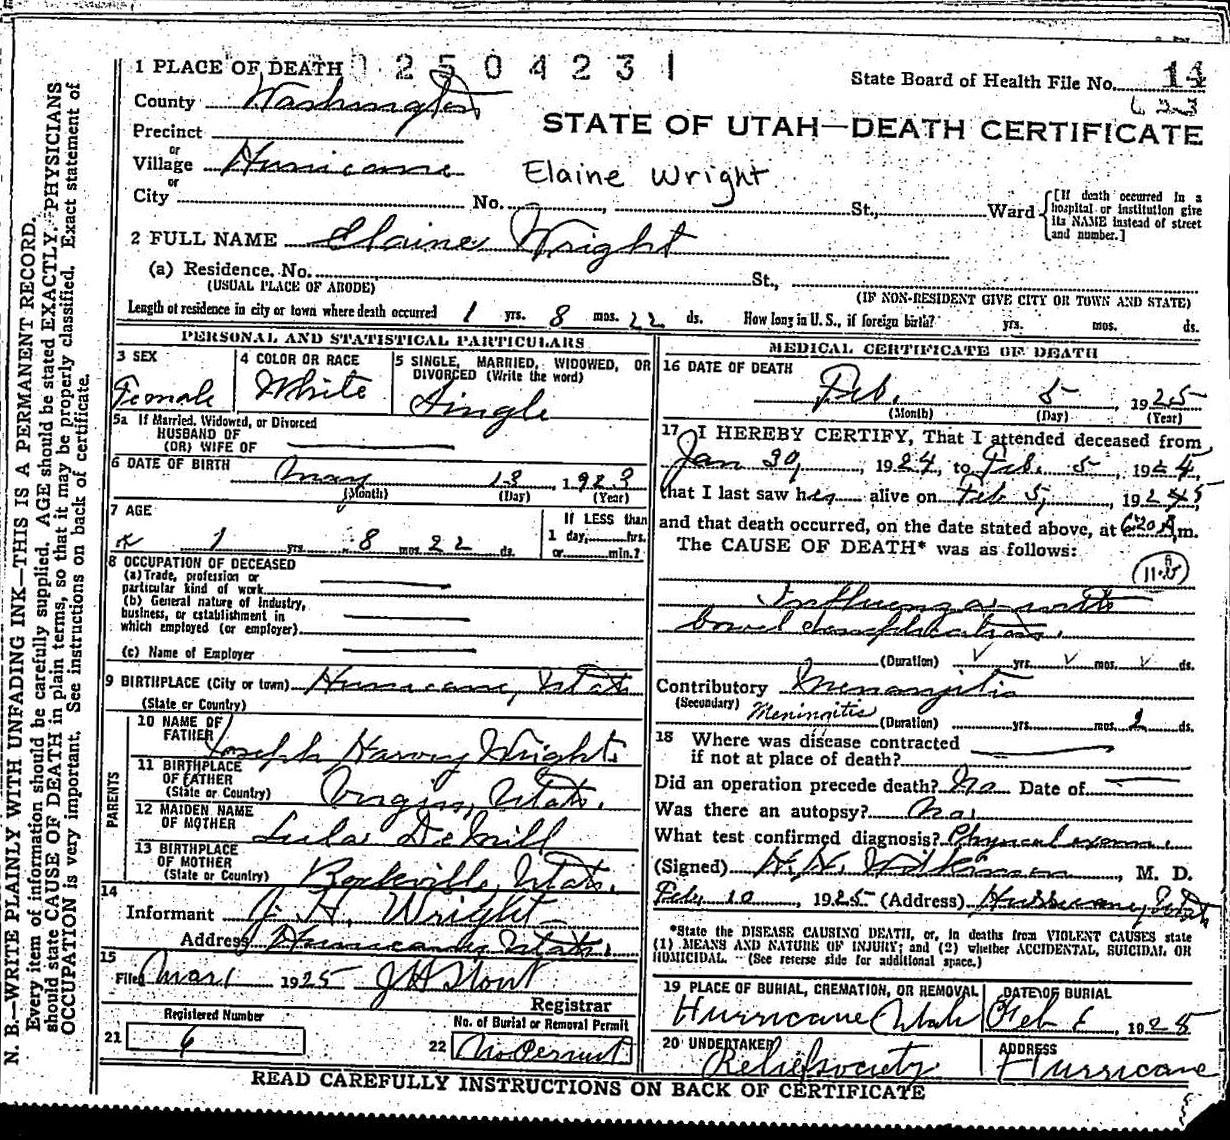 1 PLACE OF DEATH 02504231
State Board of Health File No. 14
County Washington
633
STATE OF UTAH—DEATH CERTIFICATE
Precinct
or
Village Hurricane
Elaine Wright
or
City No. St., Ward
[If death occurred in a hospital or institution give its NAME instead of street and number.]
2 FULL NAME Elaine Wright
(a) Residence. No. St.,
(USUAL PLACE OF ABODE) (IF NON-RESIDENT GIVE CITY OR TOWN AND STATE)
Length of residence in city or town where death occurred 1 yrs. 8 mos. 22 ds. How long in U. S., if foreign birth? yrs. mos. ds.
PERSONAL AND STATISTICAL PARTICULARS
3 SEX
Female
4 COLOR OR RACE
White
5 SINGLE, MARRIED, WIDOWED, OR
DIVORCED (Write the word)
Single
5a If Married, Widowed, or Divorced
HUSBAND OF
(OR) WIFE OF
6 DATE OF BIRTH May 13, 1923
(Month) (Day) (Year)
7 AGE
1 yrs. 8 mos. 22 ds.
If LESS than
1 day, hrs.
or min.?
8 OCCUPATION OF DECEASED
(a) Trade, profession or
particular kind of work
(b) General nature of industry,
business, or establishment in
which employed (or employer)
(c) Name of Employer
9 BIRTHPLACE (City or town) Hurricane, Utah
(State or Country)
PARENTS
10 NAME OF
FATHER Joseph Harvey Wright
11 BIRTHPLACE
OF FATHER
(State or Country) Virgin, Utah.
12 MAIDEN NAME
OF MOTHER Lula DeMill
13 BIRTHPLACE
OF MOTHER
(State or Country) Rockville, Utah.
14
Informant J. H. Wright
Address Hurricane, Utah.
15
Filed Mar 1 1925 J H Stout
Registrar
Registered Number
21 6
No. of Burial or Removal Permit
22 No Permit
MEDICAL CERTIFICATE OF DEATH
16 DATE OF DEATH
Feb. 5, 1925
(Month) (Day) (Year)
17 I HEREBY CERTIFY, That I attended deceased from
Jan 30, 1924, to Feb. 5
that I last saw her alive on Feb 5,
and that death occurred, on the date stated above, at 6:20 A.m.
The CAUSE OF DEATH* was as follows:
Influenza with
bowel complications.
(Duration) yrs. mos. ds.
Contributory Menanjitis
(Secondary) Meningitis
(Duration) yrs. mos. 2 ds.
18 Where was disease contracted
if not at place of death?
Did an operation precede death? No Date of
Was there an autopsy? No.
What test confirmed diagnosis? Physical exam.
(Signed) Wilkinson, M. D.
Feb. 10, 1925 (Address) Hurricane, Utah
*State the DISEASE CAUSING DEATH, or, in deaths from VIOLENT CAUSES state
(1) MEANS AND NATURE OF INJURY; and (2) whether ACCIDENTAL, SUICIDAL OR
HOMICIDAL. (See reverse side for additional space.)
19 PLACE OF BURIAL, CREMATION, OR REMOVAL
Hurricane Utah
DATE OF BURIAL
Feb 6, 1925
20 UNDERTAKER
Relief society
ADDRESS
Hurricane
READ CAREFULLY INSTRUCTIONS ON BACK OF CERTIFICATE
N. B.—WRITE PLAINLY WITH UNFADING INK—THIS IS A PERMANENT RECORD.
Every item of information should be carefully supplied. AGE should be stated EXACTLY. PHYSICIANS
should state CAUSE OF DEATH in plain terms, so that it may be properly classified. Exact statement of
OCCUPATION is very important. See instructions on back of certificate.